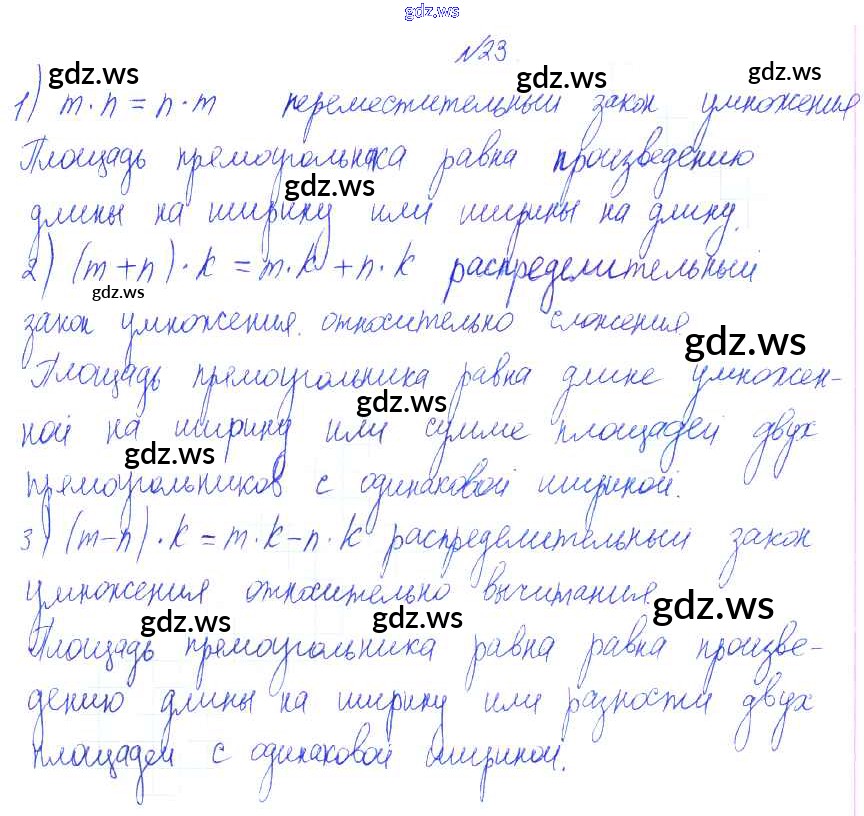 gdz.ws
№23
gdz.ws gdz.ws gdz.ws
1) m·n = n·m переместительный закон умножения
Площадь прямоугольника равна произведению
gdz.ws
длины на ширину или ширины на длину.
2) (m+n)·k = m·k + n·k распределительный
gdz.ws
закон умножения относительно сложения
gdz.ws
Площадь прямоугольника равна длине умножен-
gdz.ws
ной на ширину или сумме площадей двух
gdz.ws
прямоугольников с одинаковой шириной.
3) (m-n)·k = m·k-n·k распределительный закон
умножения относительно вычитания
gdz.ws gdz.ws gdz.ws
Площадь прямоугольника равна равна произве-
дению длины на ширину или разности двух
площадей с одинаковой шириной.